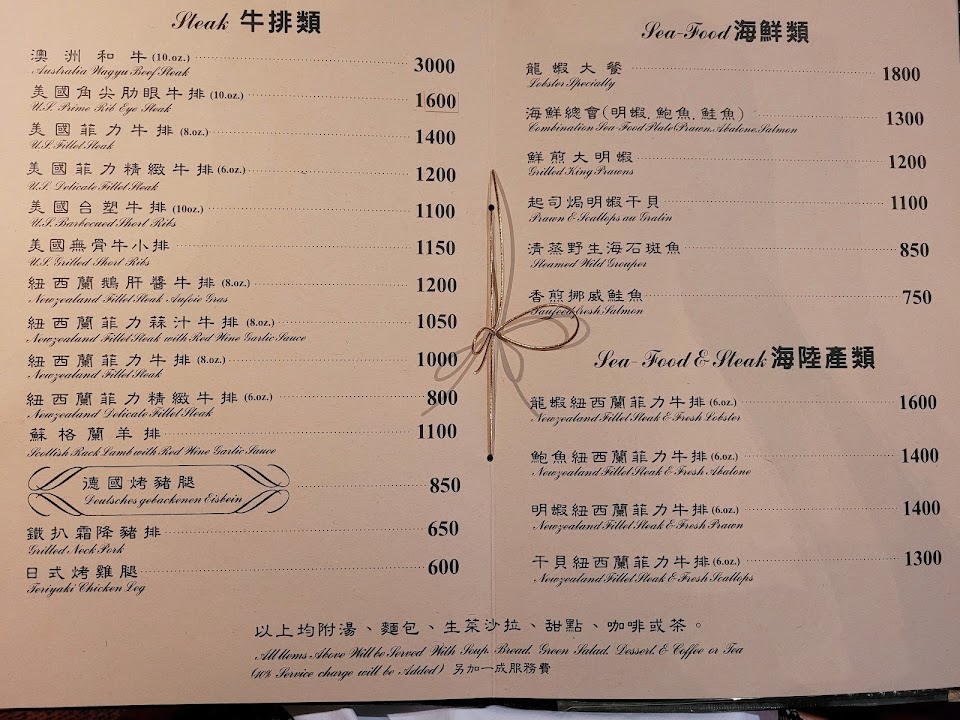 Steak 牛排類
澳洲和牛(10.oz.) 3000
Australia Wagyu Beef Steak
美國角尖肋眼牛排(10.oz.) 1600
U.S. Prime Rib Eye Steak
美國菲力牛排(8.oz.) 1400
U.S. Fillet Steak
美國菲力精緻牛排(6.oz.) 1200
U.S. Delicate Fillet Steak
美國台塑牛排(10oz.) 1100
U.S. Barbecued Short Ribs
美國無骨牛小排 1150
U.S. Grilled Short Ribs
紐西蘭鵝肝醬牛排(8.oz.) 1200
Newzealand Fillet Steak Aufoie Gras
紐西蘭菲力蒜汁牛排(8.oz.) 1050
Newzealand Fillet Steak with Red Wine Garlic Sauce
紐西蘭菲力牛排(8.oz.) 1000
Newzealand Fillet Steak
紐西蘭菲力精緻牛排(6.oz.) 800
Newzealand Delicate Fillet Steak
蘇格蘭羊排 1100
Scottish Rack Lamb with Red Wine Garlic Sauce
德國烤豬腿 850
Deutsches gebackenen Eisbein
鐵扒霜降豬排 650
Grilled Neck Pork
日式烤雞腿 600
Teriyaki Chicken Leg
Sea-Food 海鮮類
龍蝦大餐 1800
Lobster Specialty
海鮮總會(明蝦.鮑魚.鮭魚) 1300
Combination Sea-Food Plate(Prawn.Abalone.Salmon
鮮煎大明蝦 1200
Grilled King Prawns
起司焗明蝦干貝 1100
Prawn & Scallops au Gratin
清蒸野生海石斑魚 850
Steamed Wild Grouper
香煎挪威鮭魚 750
fresh Salmon
Sea-Food & Steak 海陸產類
龍蝦紐西蘭菲力牛排(6.oz.) 1600
Newzealand Fillet Steak & Fresh Lobster
鮑魚紐西蘭菲力牛排(6.oz.) 1400
Newzealand Fillet Steak & Fresh Abalone
明蝦紐西蘭菲力牛排(6.oz.) 1400
Newzealand Fillet Steak & Fresh Prawn
干貝紐西蘭菲力牛排(6.oz.) 1300
Newzealand Fillet Steak & Fresh Scallops
以上均附湯、麵包、生菜沙拉、甜點、咖啡或茶。
All Items Above Will be Served With Soup. Bread. Green Salad. Dessert. & Coffee or Tea
(10% Service charge will be Added) 另加一成服務費